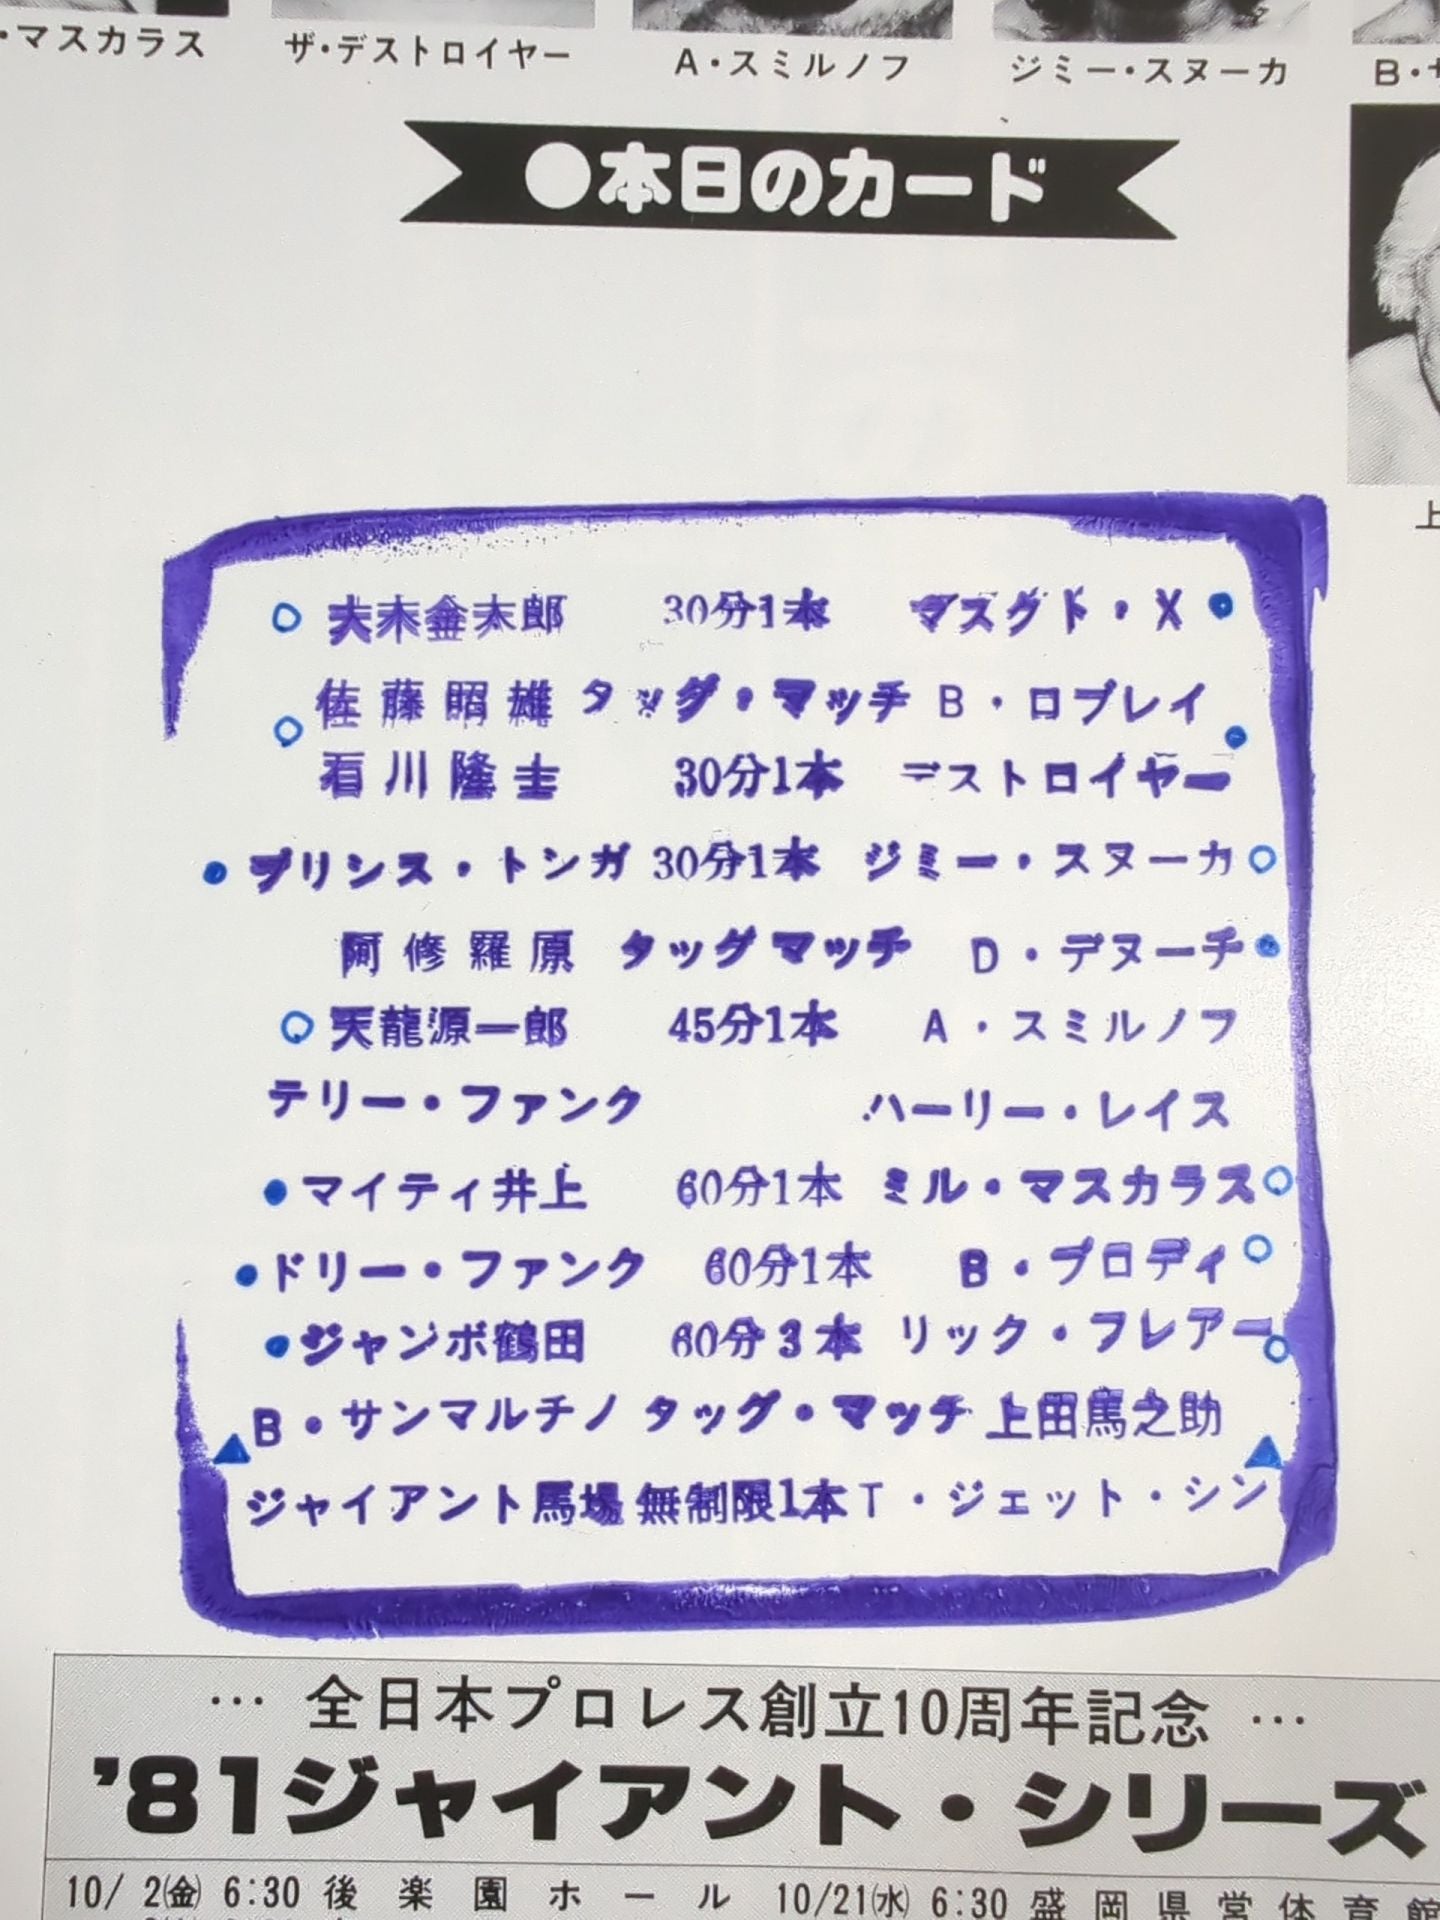 ・マスカラス ザ・デストロイヤー A・スミルノフ ジミー・スヌーカ B・サ
●本日のカード
上
○ 大木金太郎 30分1本 マスクド・X ●
佐藤昭雄 タッグ・マッチ B・ロブレイ
○ ●
石川隆圭 30分1本 デストロイヤー
● プリンス・トンガ 30分1本 ジミー・スヌーカ ○
阿修羅原 タッグマッチ D・デヌーチ ●
○ 天龍源一郎 45分1本 A・スミルノフ
テリー・ファンク ハーリー・レイス
● マイティ井上 60分1本 ミル・マスカラス ○
● ドリー・ファンク 60分1本 B・ブロディ ○
● ジャンボ鶴田 60分3本 リック・フレアー ○
B・サンマルチノ タッグ・マッチ 上田馬之助
▲ ▲
ジャイアント馬場 無制限1本 T・ジェット・シン
… 全日本プロレス創立10周年記念 …
'81ジャイアント・シリーズ
10/ 2㈮ 6:30 後楽園ホール 10/21㈬ 6:30 盛岡県営体育館